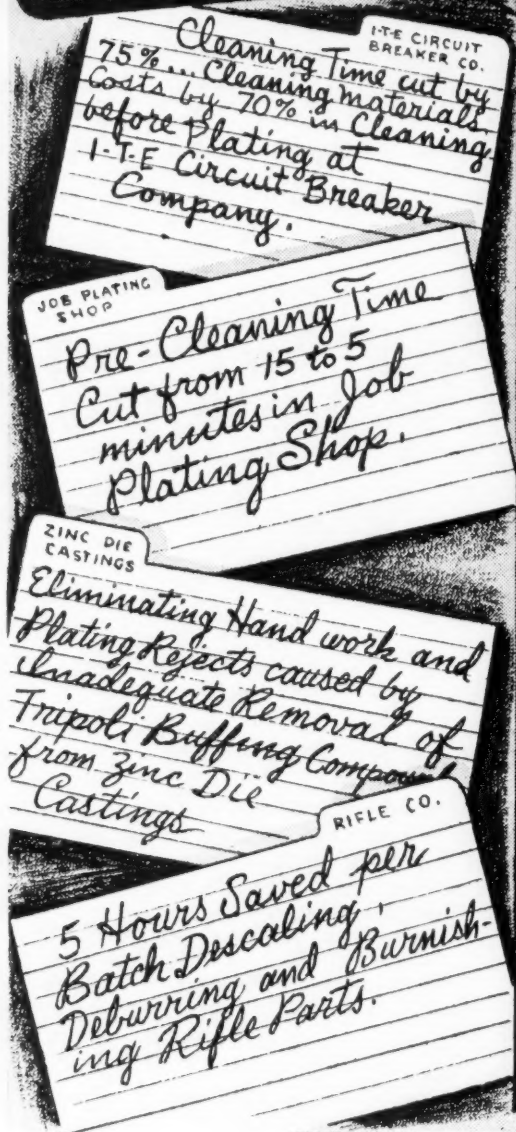 I-T-E CIRCUIT
BREAKER CO.
Cleaning Time cut by
75%... Cleaning materials
Costs by 70% in Cleaning
before Plating at
I-T-E Circuit Breaker
Company.
JOB PLATING
SHOP
Pre-Cleaning Time
Cut from 15 to 5
minutes in Job
Plating Shop.
ZINC DIE
CASTINGS
Eliminating Hand work and
Plating Rejects caused by
Inadequate Removal of
Tripoli Buffing Compound
from Zinc Die
Castings
RIFLE CO.
5 Hours Saved per
Batch Descaling,
Deburring and Burnish-
ing Rifle Parts.